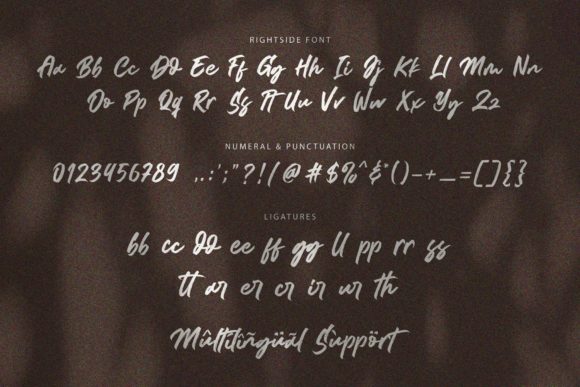 RIGHTSIDE FONT
Aa Bb Cc Dd Ee Ff Gg Hh Ii Jj Kk Ll Mm Nn
Oo Pp Qq Rr Ss Tt Uu Vv Ww Xx Yy Zz
NUMERAL & PUNCTUATION
0123456789 ,.:';"?!(@#$%^&*()-+_=[]{}
LIGATURES
bb cc dd ee ff gg ll pp rr ss
tt ar er cr ir ur th
Mûltilîñgüãl Sùppört